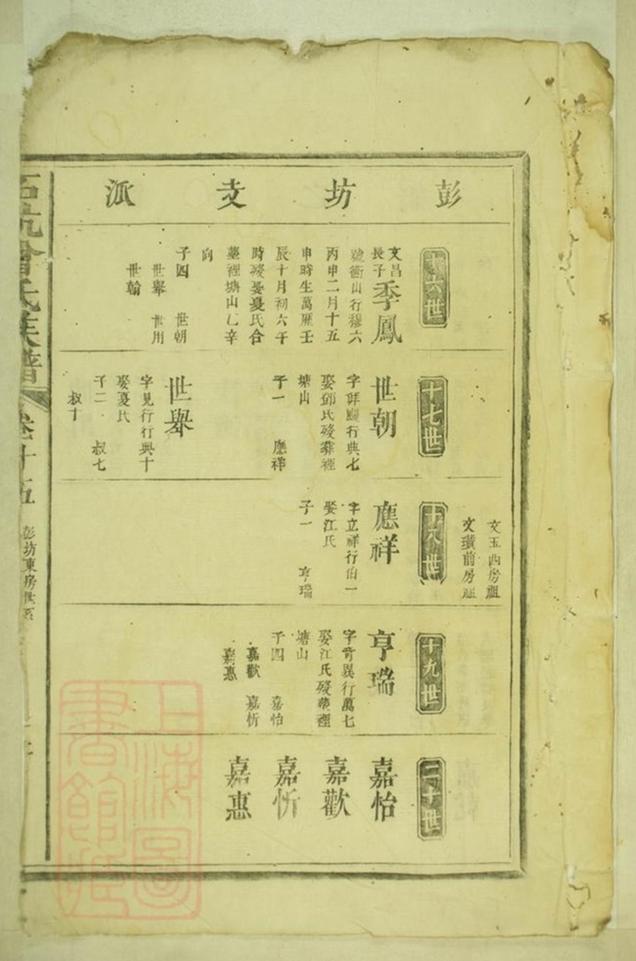 彭坊支派
文玉西房祖
文瓚前房祖
十六世
文昌
長子
季鳳
號衝山行穆六
丙申二月十五
申時生萬曆壬
辰十月初六午
時歿娶憂氏合
墓裡塘山乙辛
向
子四 世朝
世舉 世用
世翰
十七世
世朝
行典七
娶鄧氏歿葬裡
塘山
子一 應祥
世舉
字見行行典十
娶憂氏
子二 叔七
叔十
十八世
應祥
字立祥行伯一
娶江氏
子一 亨瑞
十九世
亨瑞
字肯異行萬七
娶江氏歿葬裡
塘山
子四 嘉怡
嘉歡 嘉忻
嘉惠
二十世
嘉怡
嘉歡
嘉忻
嘉惠
曾氏族譜
卷十五
彭坊東房世系
上海圖書館藏